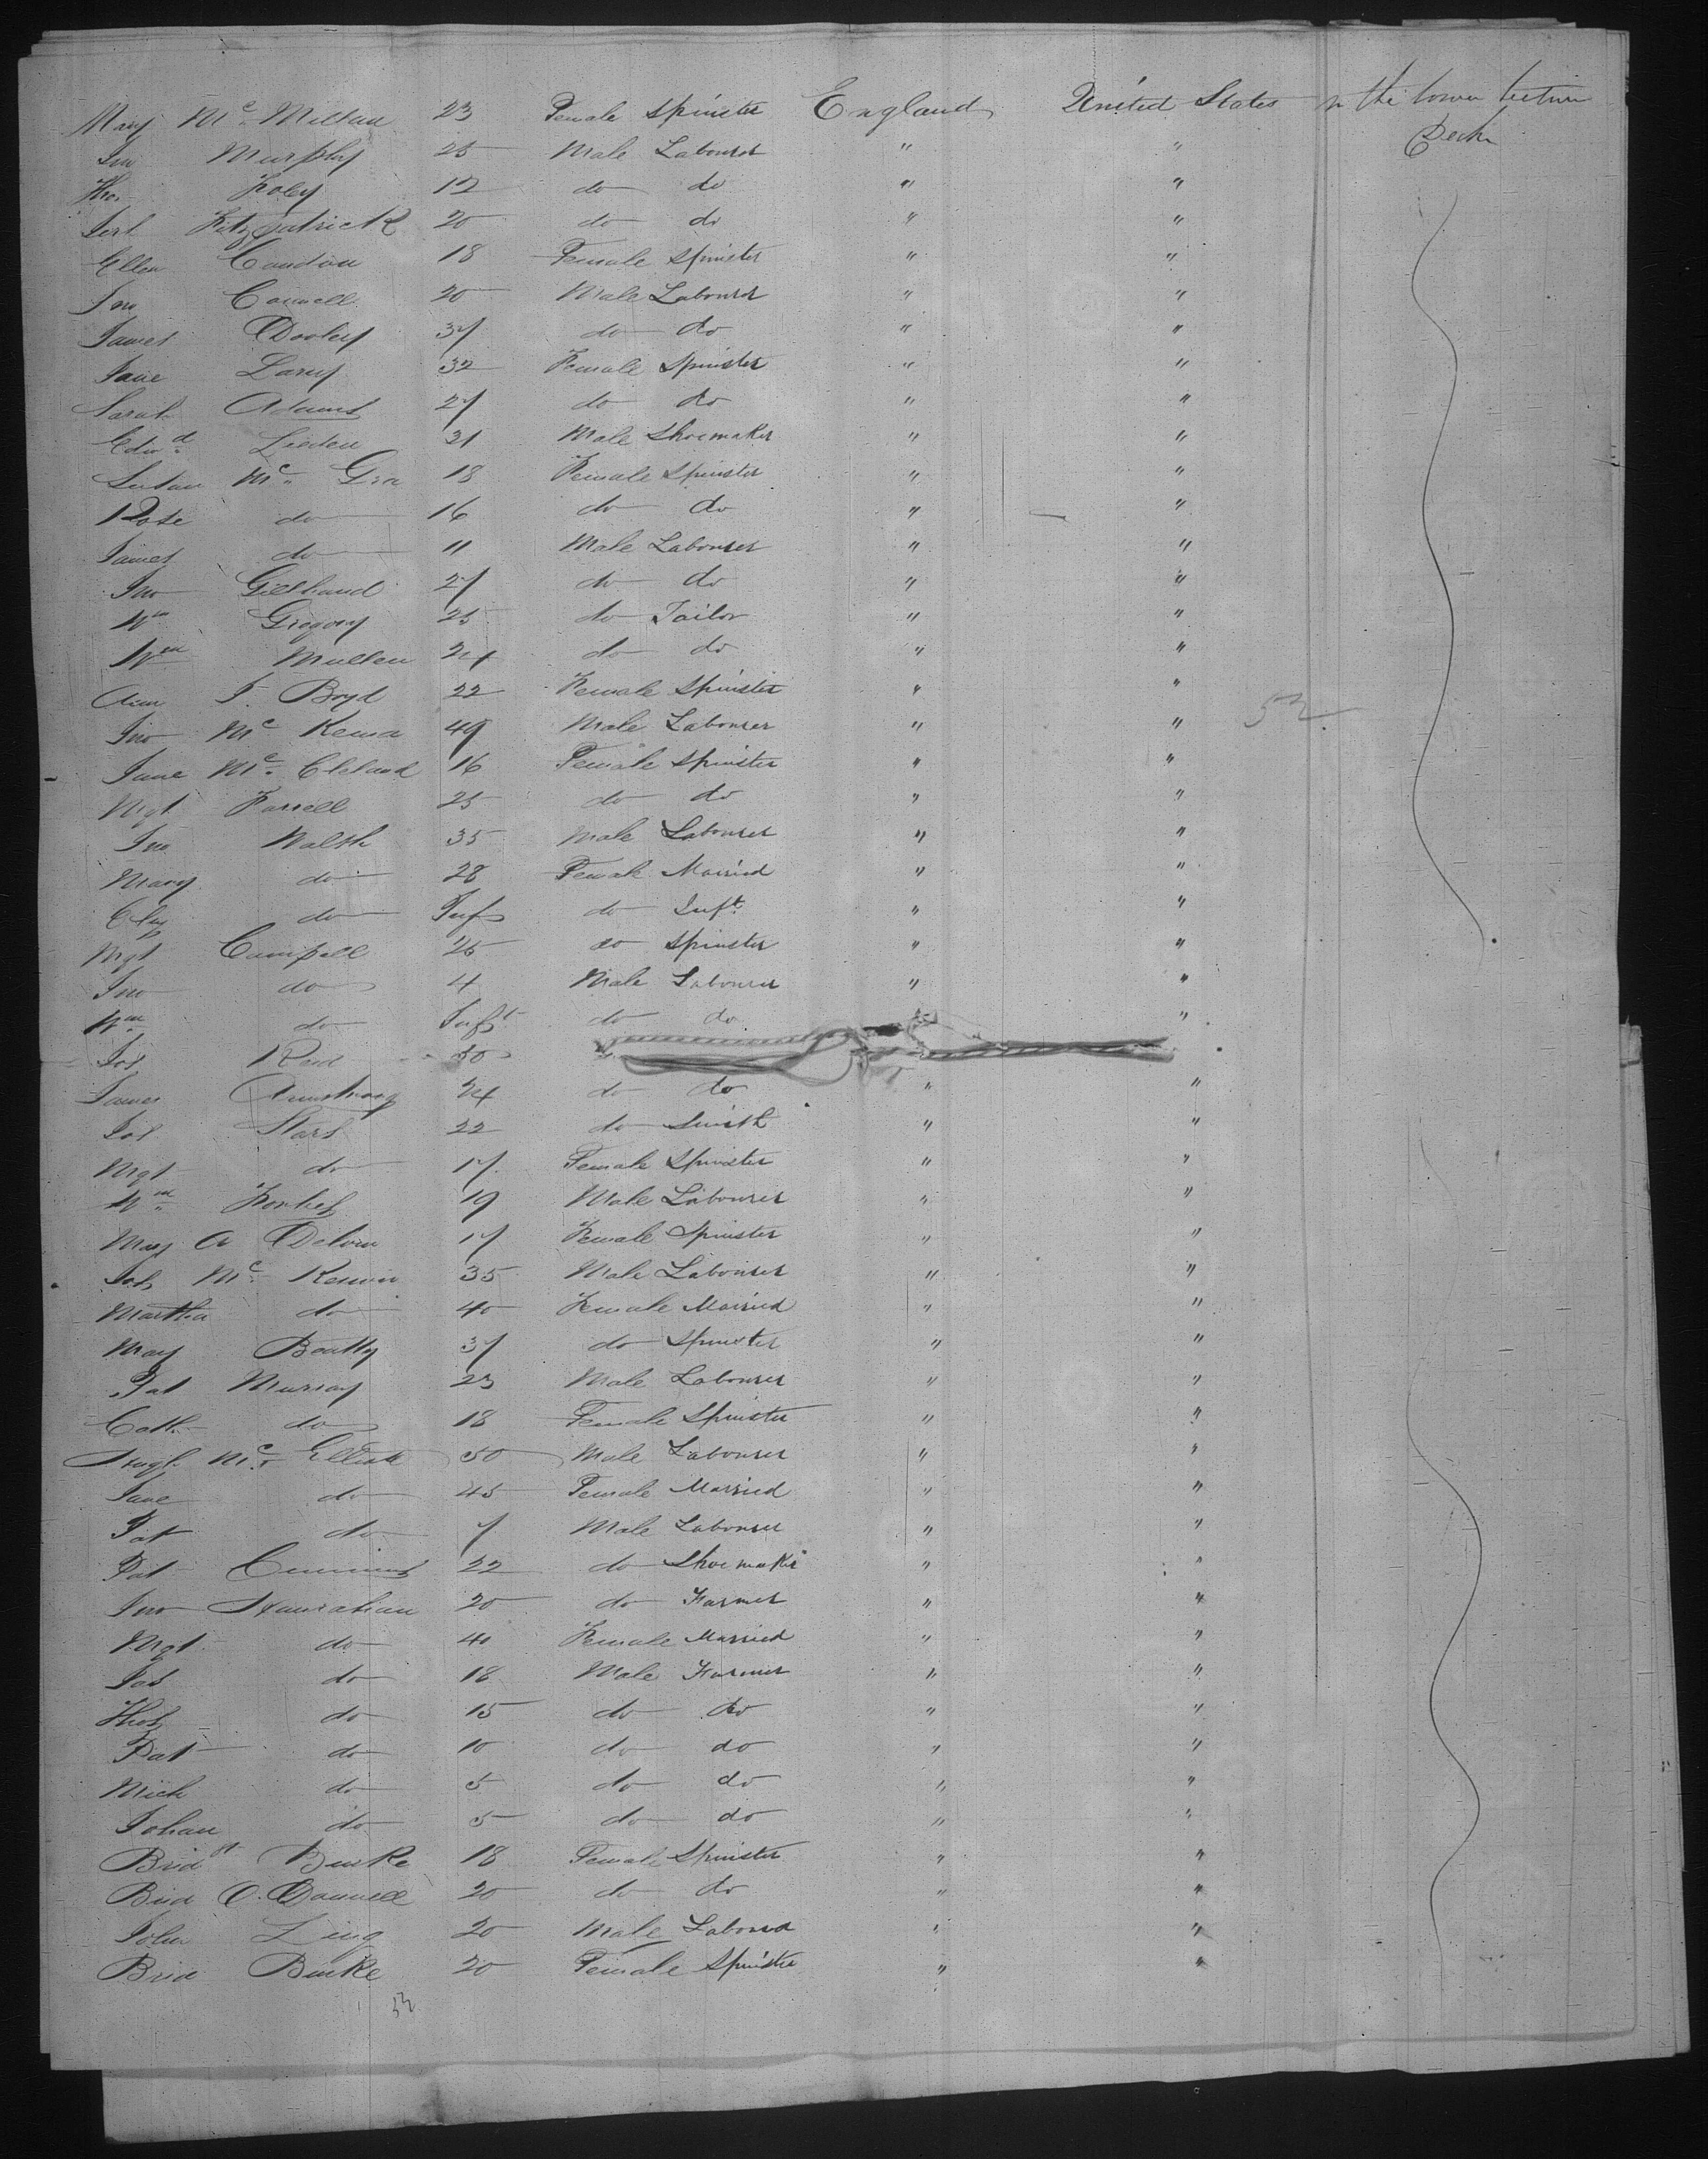 Mary Mc. Millan 23 Female Spinster England United States In the lower between
Jno Murphy 25 Male Labourer " " Deck
Tho. Foley 12 do do " "
Fitzpatrick 20 do do " "
Ellen Condon 18 Female Spinster " "
Jno Connell 20 Male Labourer " "
James Dooley 37 do do " "
Jane Lary 32 Female Spinster " "
Sarah Adams 27 do do " "
Edwd. 31 Male Shoemaker " "
Susan Mc. Gra 18 Female Spinster " "
Rose do 16 do do " "
James do 11 Male Labourer " "
Jno Gilliland 27 do do " "
Wm Gregory 25 do Tailor " "
Wm Mullen 24 do do " "
Ann J. Boyd 22 Female Spinster " "
Jno Mc Kenna 49 Male Labourer " " 52
Jane Mc. Cleland 16 Female Spinster " "
Mgt Farrell 25 do do " "
Jno Walsh 35 Male Labourer " "
Mary do 28 Female Married " "
do Inf do Inft. " "
Mgt Campell 25 do Spinster " "
Jno do 4 Male Labourer " "
Wm do Inft do do "
Jos Reid 30
James Armstrong 24 do do " "
Jos 22 do Smith " "
Mgt do 17 Female Spinster " "
Wm. 19 Male Labourer " "
Mary A Delvin 17 Female Spinster " "
Jos Mc. 35 Male Labourer " "
Martha do 40 Female Married " "
Mary Beatty 37 do Spinster " "
Pat Murray 23 Male Labourer " "
Cath. do 18 Female Spinster " "
Hugh Mc. 50 Male Labourer " "
Jane do 45 Female Married " "
Pat do 7 Male Labourer " "
Pat Cummins 22 do Shoemaker " "
Jno Hanrahan 20 do Farmer " "
Mgt do 40 Female Married " "
Jas do 18 Male Farmer " "
Thos do 15 do do " "
Pat do 10 do do " "
Mich do 5 do do " "
Johan do 5 do do " "
Bridgt Burke 18 Female Spinster " "
Brid O. Donnell 20 do do " "
John Ling 20 Male Labourer " "
Brid Burke 20 Female Spinster " "
53